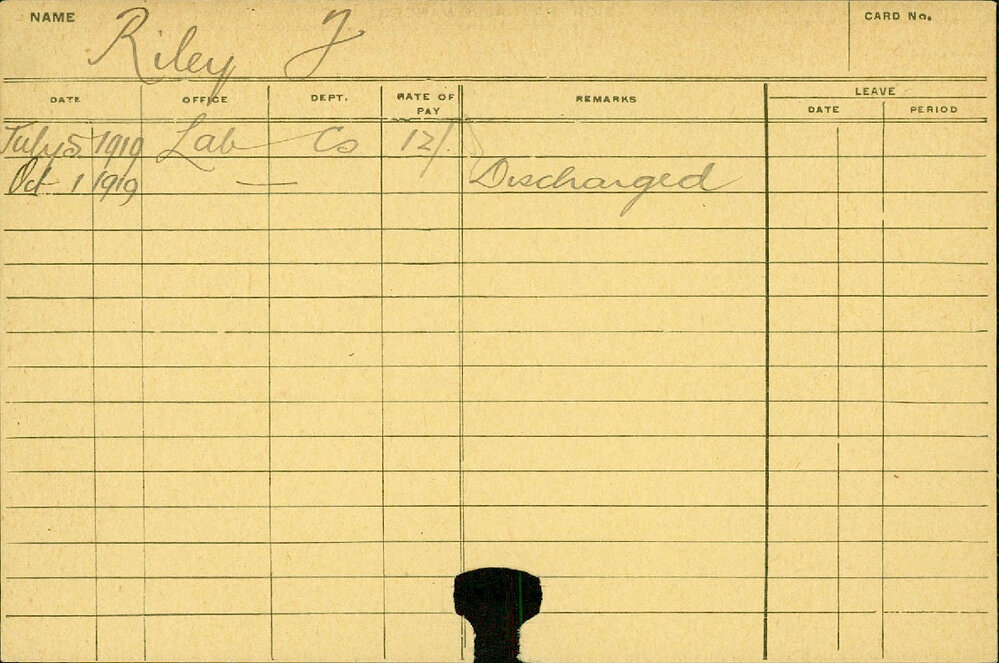 NAME Riley J CARD No.
DATE OFFICE DEPT. RATE OF PAY REMARKS LEAVE
DATE PERIOD
July 5 1919 Lab Cs 12/.
Oct 1 1919 — Discharged